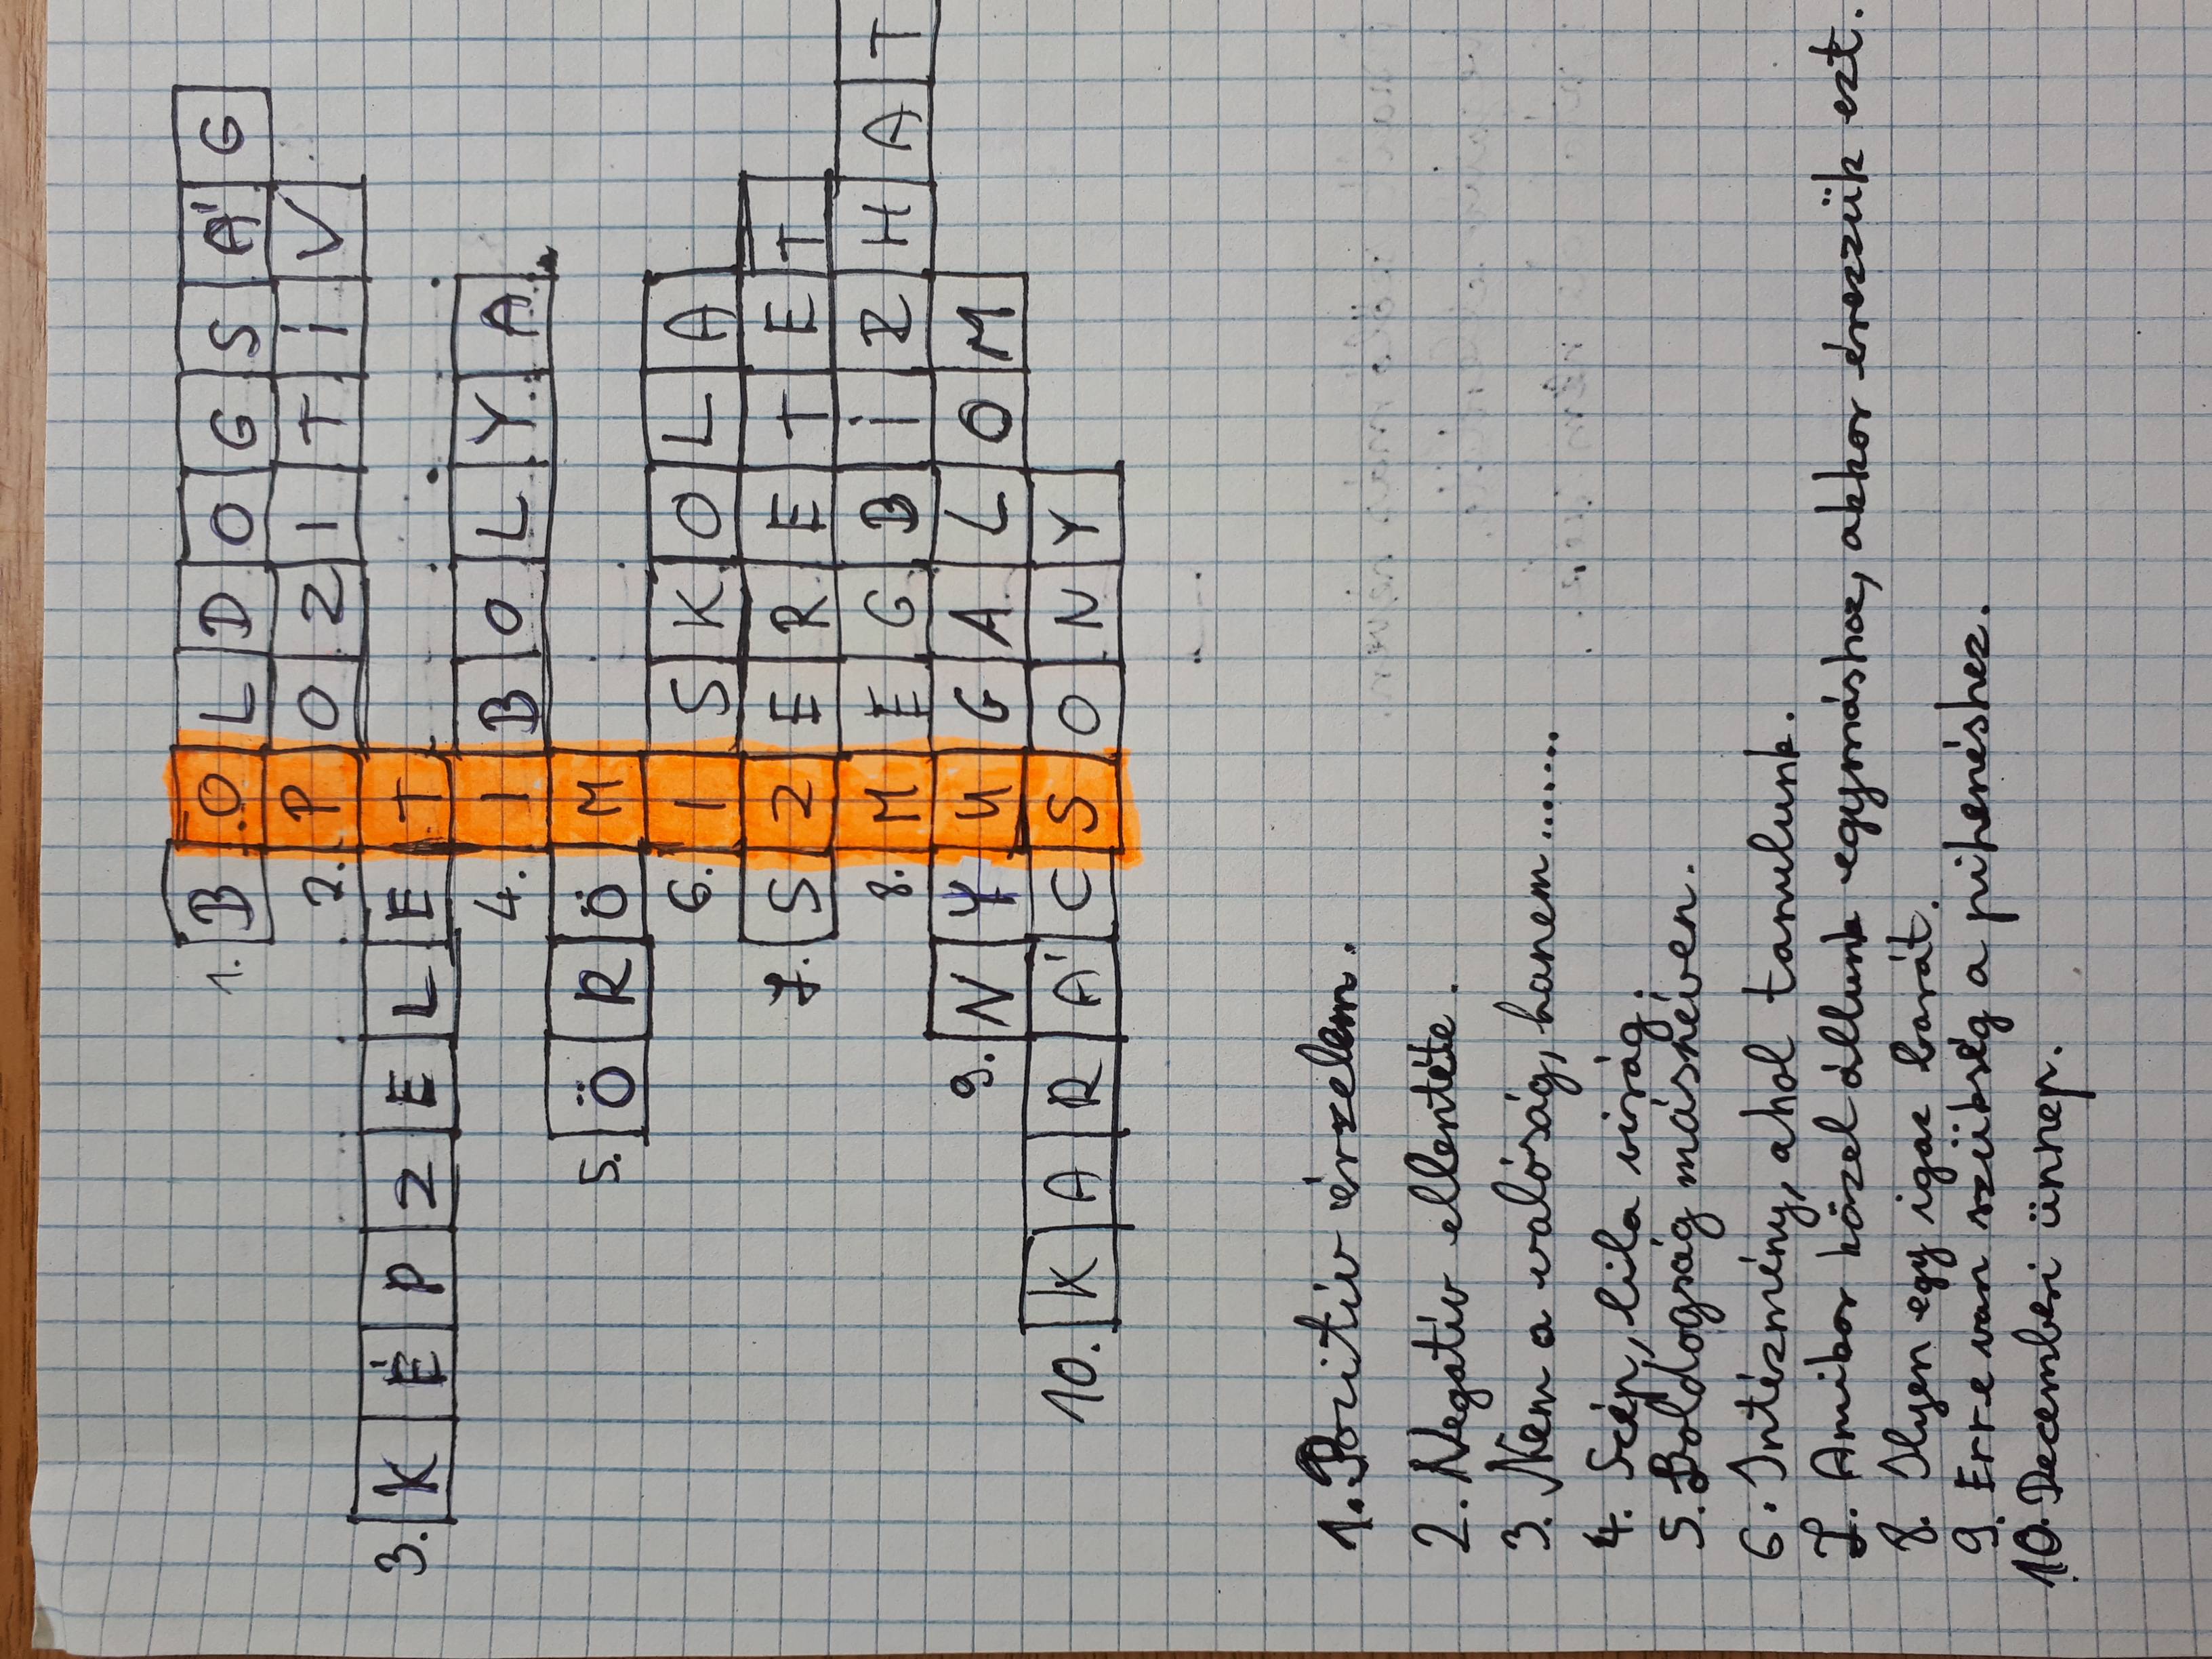 1. BOLDOGSÁG
2. POZITiV
3. KÉPZELET
4. IBOLYA
5. ÖRÖM
6. ISKOLA
7. SZERETET
8. MEGBiZHAT
9. NYUGALOM
10. KARÁCSONY
1. Pozitív érzelem.
2. Negatív ellentéte.
3. Nem a valóság, hanem.......
4. Szép, lila virág.
5. Boldogság másnéven.
6. Intézmény, ahol tanulunk.
7. Amikor közel állunk egymáshoz, akkor érezzük ezt.
8. Ilyen egy igaz barát.
9. Erre van szükség a pihenéshez.
10. Decemberi ünnep.